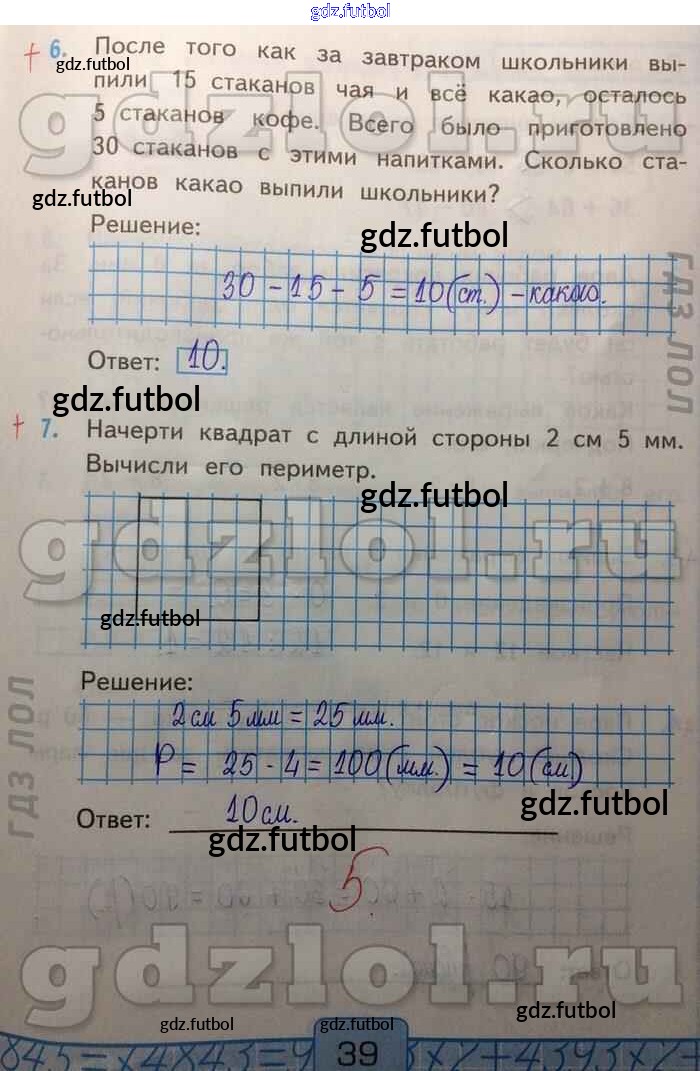 gdz.futbol
6. После того как за завтраком школьники вы-
gdz.futbol
пили 15 стаканов чая и всё какао, осталось
5 стаканов кофе. Всего было приготовлено
gdzlol.ru
30 стаканов с этими напитками. Сколько ста-
канов какао выпили школьники?
gdz.futbol
Решение:
gdz.futbol
30 - 15 - 5 = 10 (ст.) - какао.
ГДЗ ЛОЛ
Ответ: 10.
gdz.futbol
7. Начерти квадрат с длиной стороны 2 см 5 мм.
Вычисли его периметр.
gdz.futbol
gdzlol.ru
gdz.futbol
Решение:
2 см 5 мм = 25 мм.
ГДЗ ЛОЛ
P = 25 · 4 = 100 (мм.) = 10 (см)
gdz.futbol
Ответ: 10 см.
gdz.futbol
5
gdzlol.ru
gdz.futbol
gdz.futbol
gdz.futbol
39